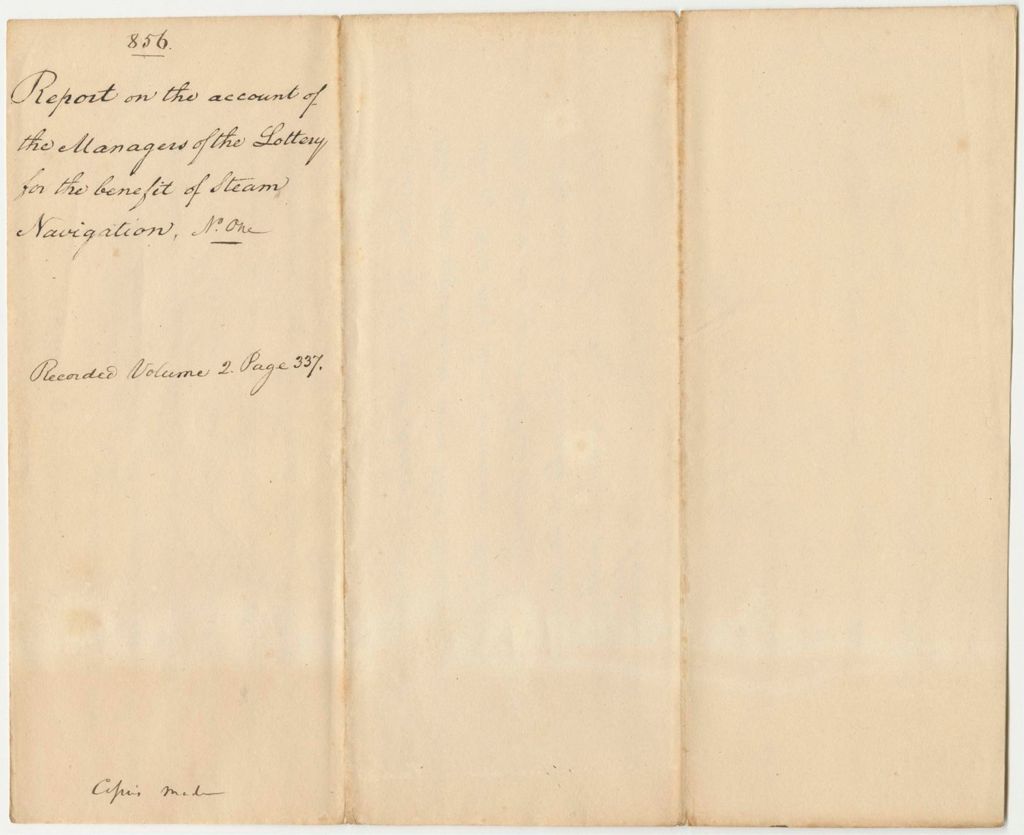 856.
Report on the account of
the Managers of the Lottery
for the benefit of Steam
Navigation, No. One
Recorded Volume 2. Page 337.
Copies made